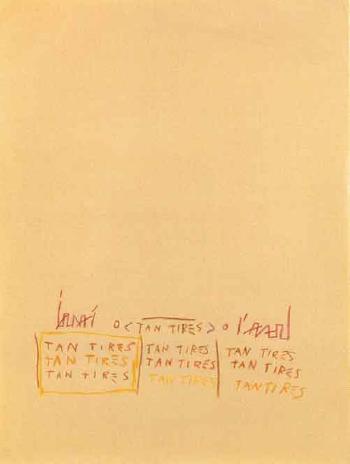 O < TAN TIRES > O
TAN TIRES TAN TIRES TAN TIRES
TAN TIRES TAN TIRES TAN TIRES
TAN TIRES TAN TIRES TAN TIRES